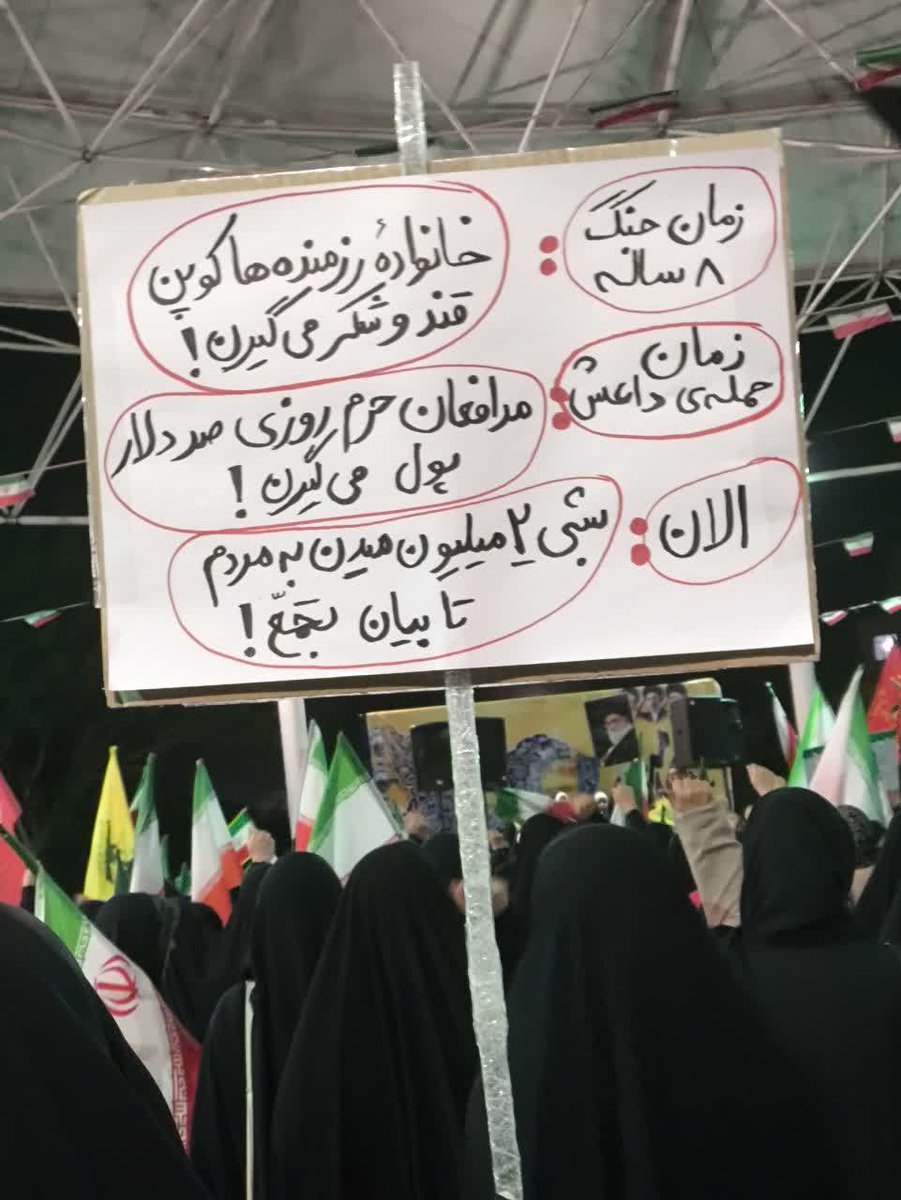 زمان جنگ
۸ ساله
:
خانوادهٔ رزمنده ها کوپن
قند و شکر می گیرن!
زمان
حمله‌ی داعش
:
مدافعان حرم روزی صد دلار
پول می گیرن!
الان
:
شبی ۲ میلیون میدن به مردم
تا بیان تجمّع!